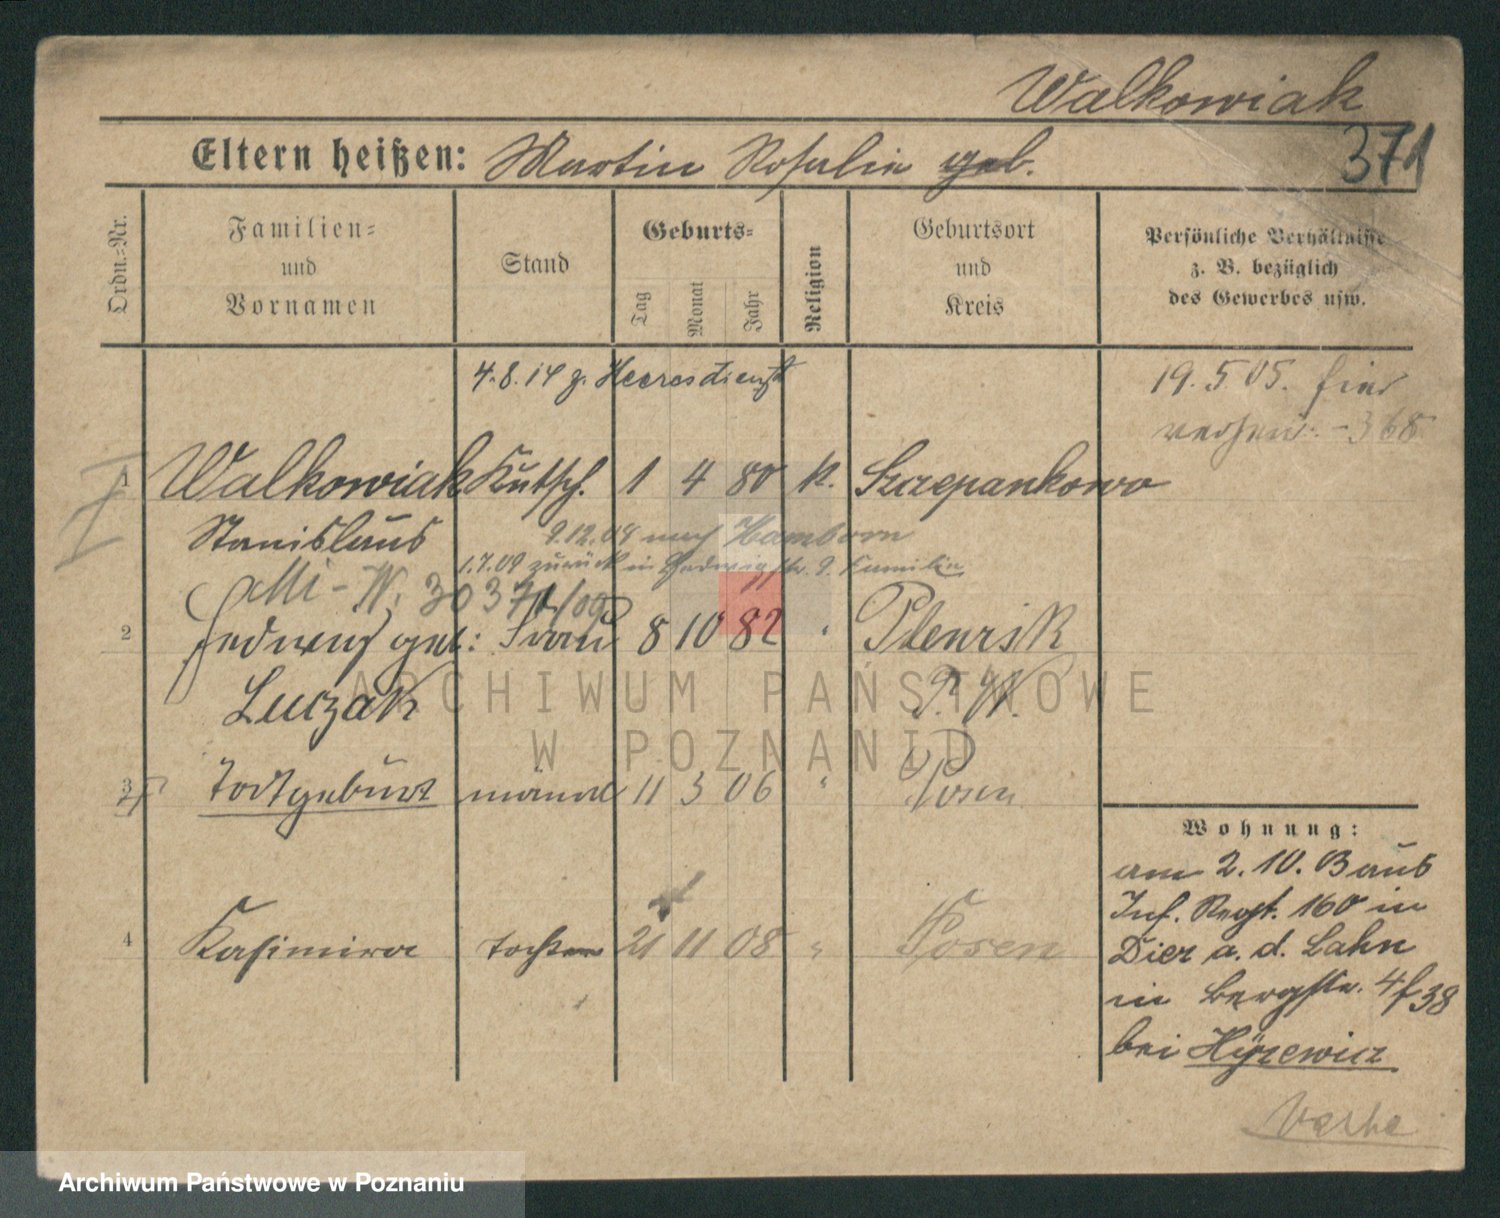 Walkowiak
371
Eltern heißen: Martin Rosalie geb.
Ordn.-Nr.
Familien- und Vornamen
Stand
Geburts-
Tag
Monat
Jahr
Religion
Geburtsort und Kreis
Persönliche Verhältnisse z. B. bezüglich des Gewerbes usw.
4.8.14 z. Heeresdienst
19.5.05. hier
368
1 Walkowiak Kutsch. 1 4 80 k. Szczepankowo
Stanislaus
9.12.08 nach Hamborn
1.7.09 zurück in Hedwigstr. 9. Familie
30371/09
2 Hedwig geb: Frau 8 10 82 " Plenrsik
Luczak P. W.
3 Todtgeburt männl 11 3 06 " Posen
4 Kasimira Tochter 21 11 08 " Posen
Wohnung:
am 2.10.03 aus
Inf. Regt. 160 in
Diez a. d. Lahn
in Bergstr. 4f38
bei Hÿzewicz
ARCHIWUM PAŃSTWOWE
W POZNANIU
Archiwum Państwowe w Poznaniu